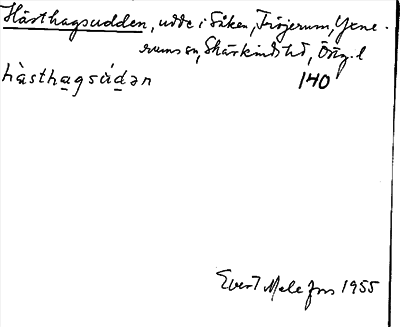 Hästhagsudden, udde i Såken, Fröjerum, Yxne-
rums sn, Skärkinds hd, Östg. l
hàsthagsúdən 140
Evert Melefors 1955